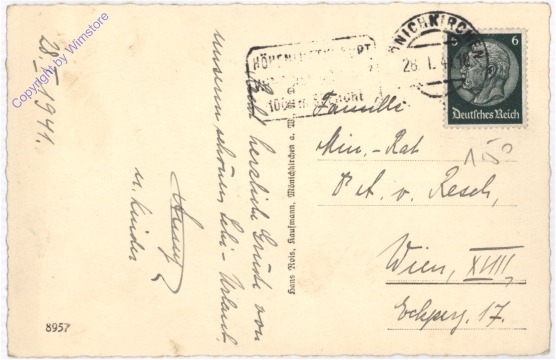 Copyright by Wimstore
28. I. 1941.
Recht herzliche Grüße von
unserem schönen Schi-Urlaub,
u. Kinder
8957
Hans Nois, Kaufmann, Mönichkirchen a. W., N. D.
HÖHENLUFTKURORT
1000 m
MÖNICHKIRCHEN
28. I. 4
6 6
Deutsches Reich
Familie
Min.-Rat
v. Resch,
Wien, XVIII,
Eckperg. 17.
150